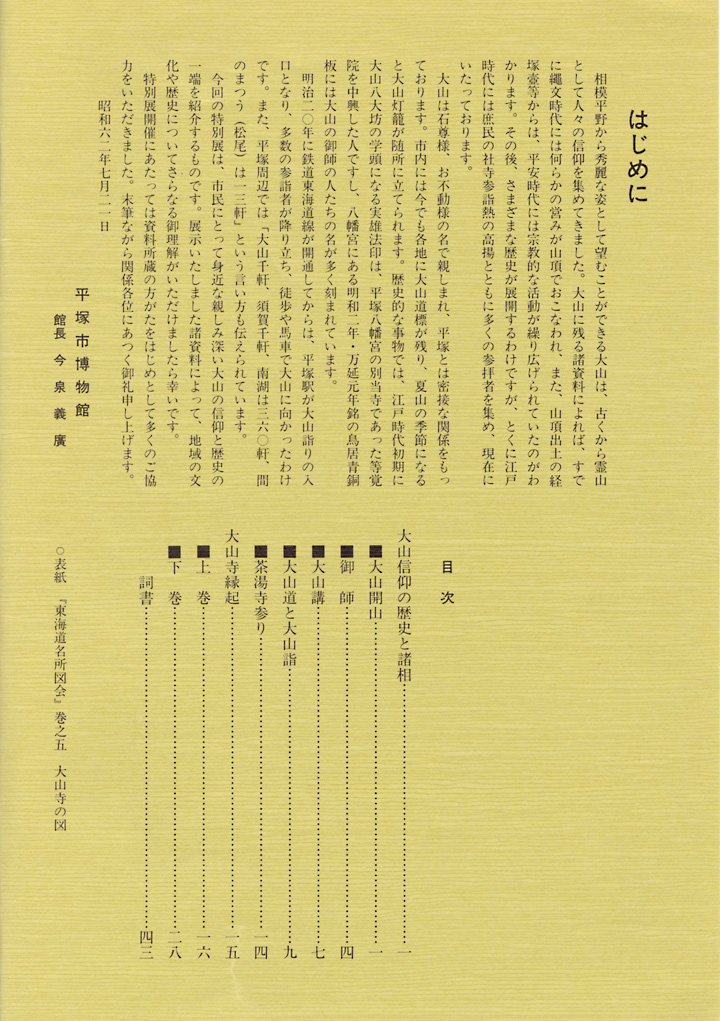 はじめに
相模平野から秀麗な姿として望むことができる大山は、古くから霊山
として人々の信仰を集めてきました。大山に残る諸資料によれば、すで
に縄文時代には何らかの営みが山頂でおこなわれ、また、山頂出土の経
塚壺等からは、平安時代には宗教的な活動が繰り広げられていたのがわ
かります。その後、さまざまな歴史が展開するわけですが、とくに江戸
時代には庶民の社寺参詣熱の高揚とともに多くの参拝者を集め、現在に
いたっております。
大山は石尊様、お不動様の名で親しまれ、平塚とは密接な関係をもっ
ております。市内には今でも各地に大山道標が残り、夏山の季節になる
と大山灯籠が随所に立てられます。歴史的な事物では、江戸時代初期に
大山八大坊の学頭になる実雄法印は、平塚八幡宮の別当寺であった等覚
院を中興した人ですし、八幡宮にある明和二年・万延元年銘の鳥居青銅
板には大山の御師の人たちの名が多く刻まれています。
明治二〇年に鉄道東海道線が開通してからは、平塚駅が大山詣りの入
口となり、多数の参詣者が降り立ち、徒歩や馬車で大山に向かったわけ
です。また、平塚周辺では「大山千軒、須賀千軒、南湖は三六〇軒、間
のまつう（松尾）は一三軒」という言い方も伝えられています。
今回の特別展は、市民にとって身近な親しみ深い大山の信仰と歴史の
一端を紹介するものです。展示いたしました諸資料によって、地域の文
化や歴史についてさらなる御理解がいただけましたら幸いです。
特別展開催にあたっては資料所蔵の方がたをはじめとして多くのご協
力をいただきました。末筆ながら関係各位にあつく御礼申し上げます。
昭和六二年七月二一日
平塚市博物館
館長 今泉義廣
目次
大山信仰の歴史と諸相……………………一
■大山開山……………………一
■御師……………………四
■大山講……………………七
■大山道と大山詣……………………九
■茶湯寺参り……………………一四
大山寺縁起……………………一五
■上巻……………………一六
■下巻……………………二八
詞書……………………四三
○表紙 『東海道名所図会』巻之五 大山寺の図